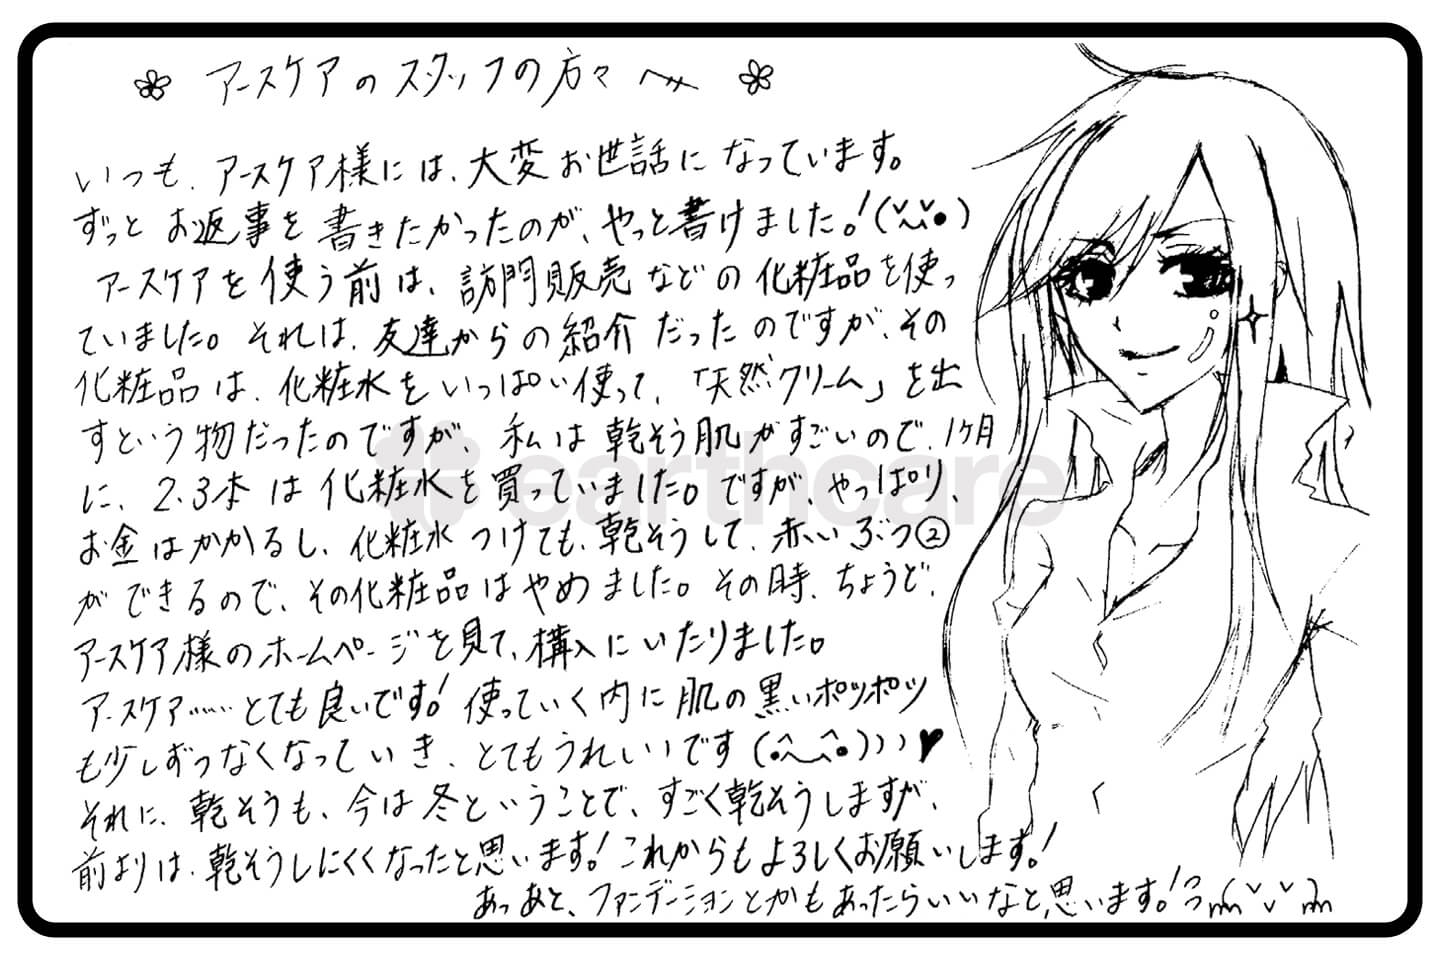 アースケアのスタッフの方々へ
いつも、アースケア様には、大変お世話になっています。
ずっとお返事を書きたかったのが、やっと書けました!
アースケアを使う前は、訪問販売などの化粧品を使っ
ていました。それは、友達からの紹介だったのですが、その
化粧品は、化粧水をいっぱい使って、「天然クリーム」を出
すという物だったのですが、私は乾そう肌がすごいので、1ヶ月
に、2、3本は化粧水を買っていました。ですが、やっぱり、
earthcare
お金はかかるし、化粧水つけても、乾そうして、赤いぶつ②
ができるので、その化粧品はやめました。その時、ちょうど、
アースケア様のホームページを見て、構入にいたりました。
アースケア……とても良いです!使っていく内に肌の黒いポツポツ
も少しずつなくなっていき、とてもうれしいです
それに、乾そうも、今は冬ということで、すごく乾そうしますが、
前よりは、乾そうしにくくなったと思います!これからもよろしくお願いします!
あっあと、ファンデーションとかもあったらいいなと、思います!